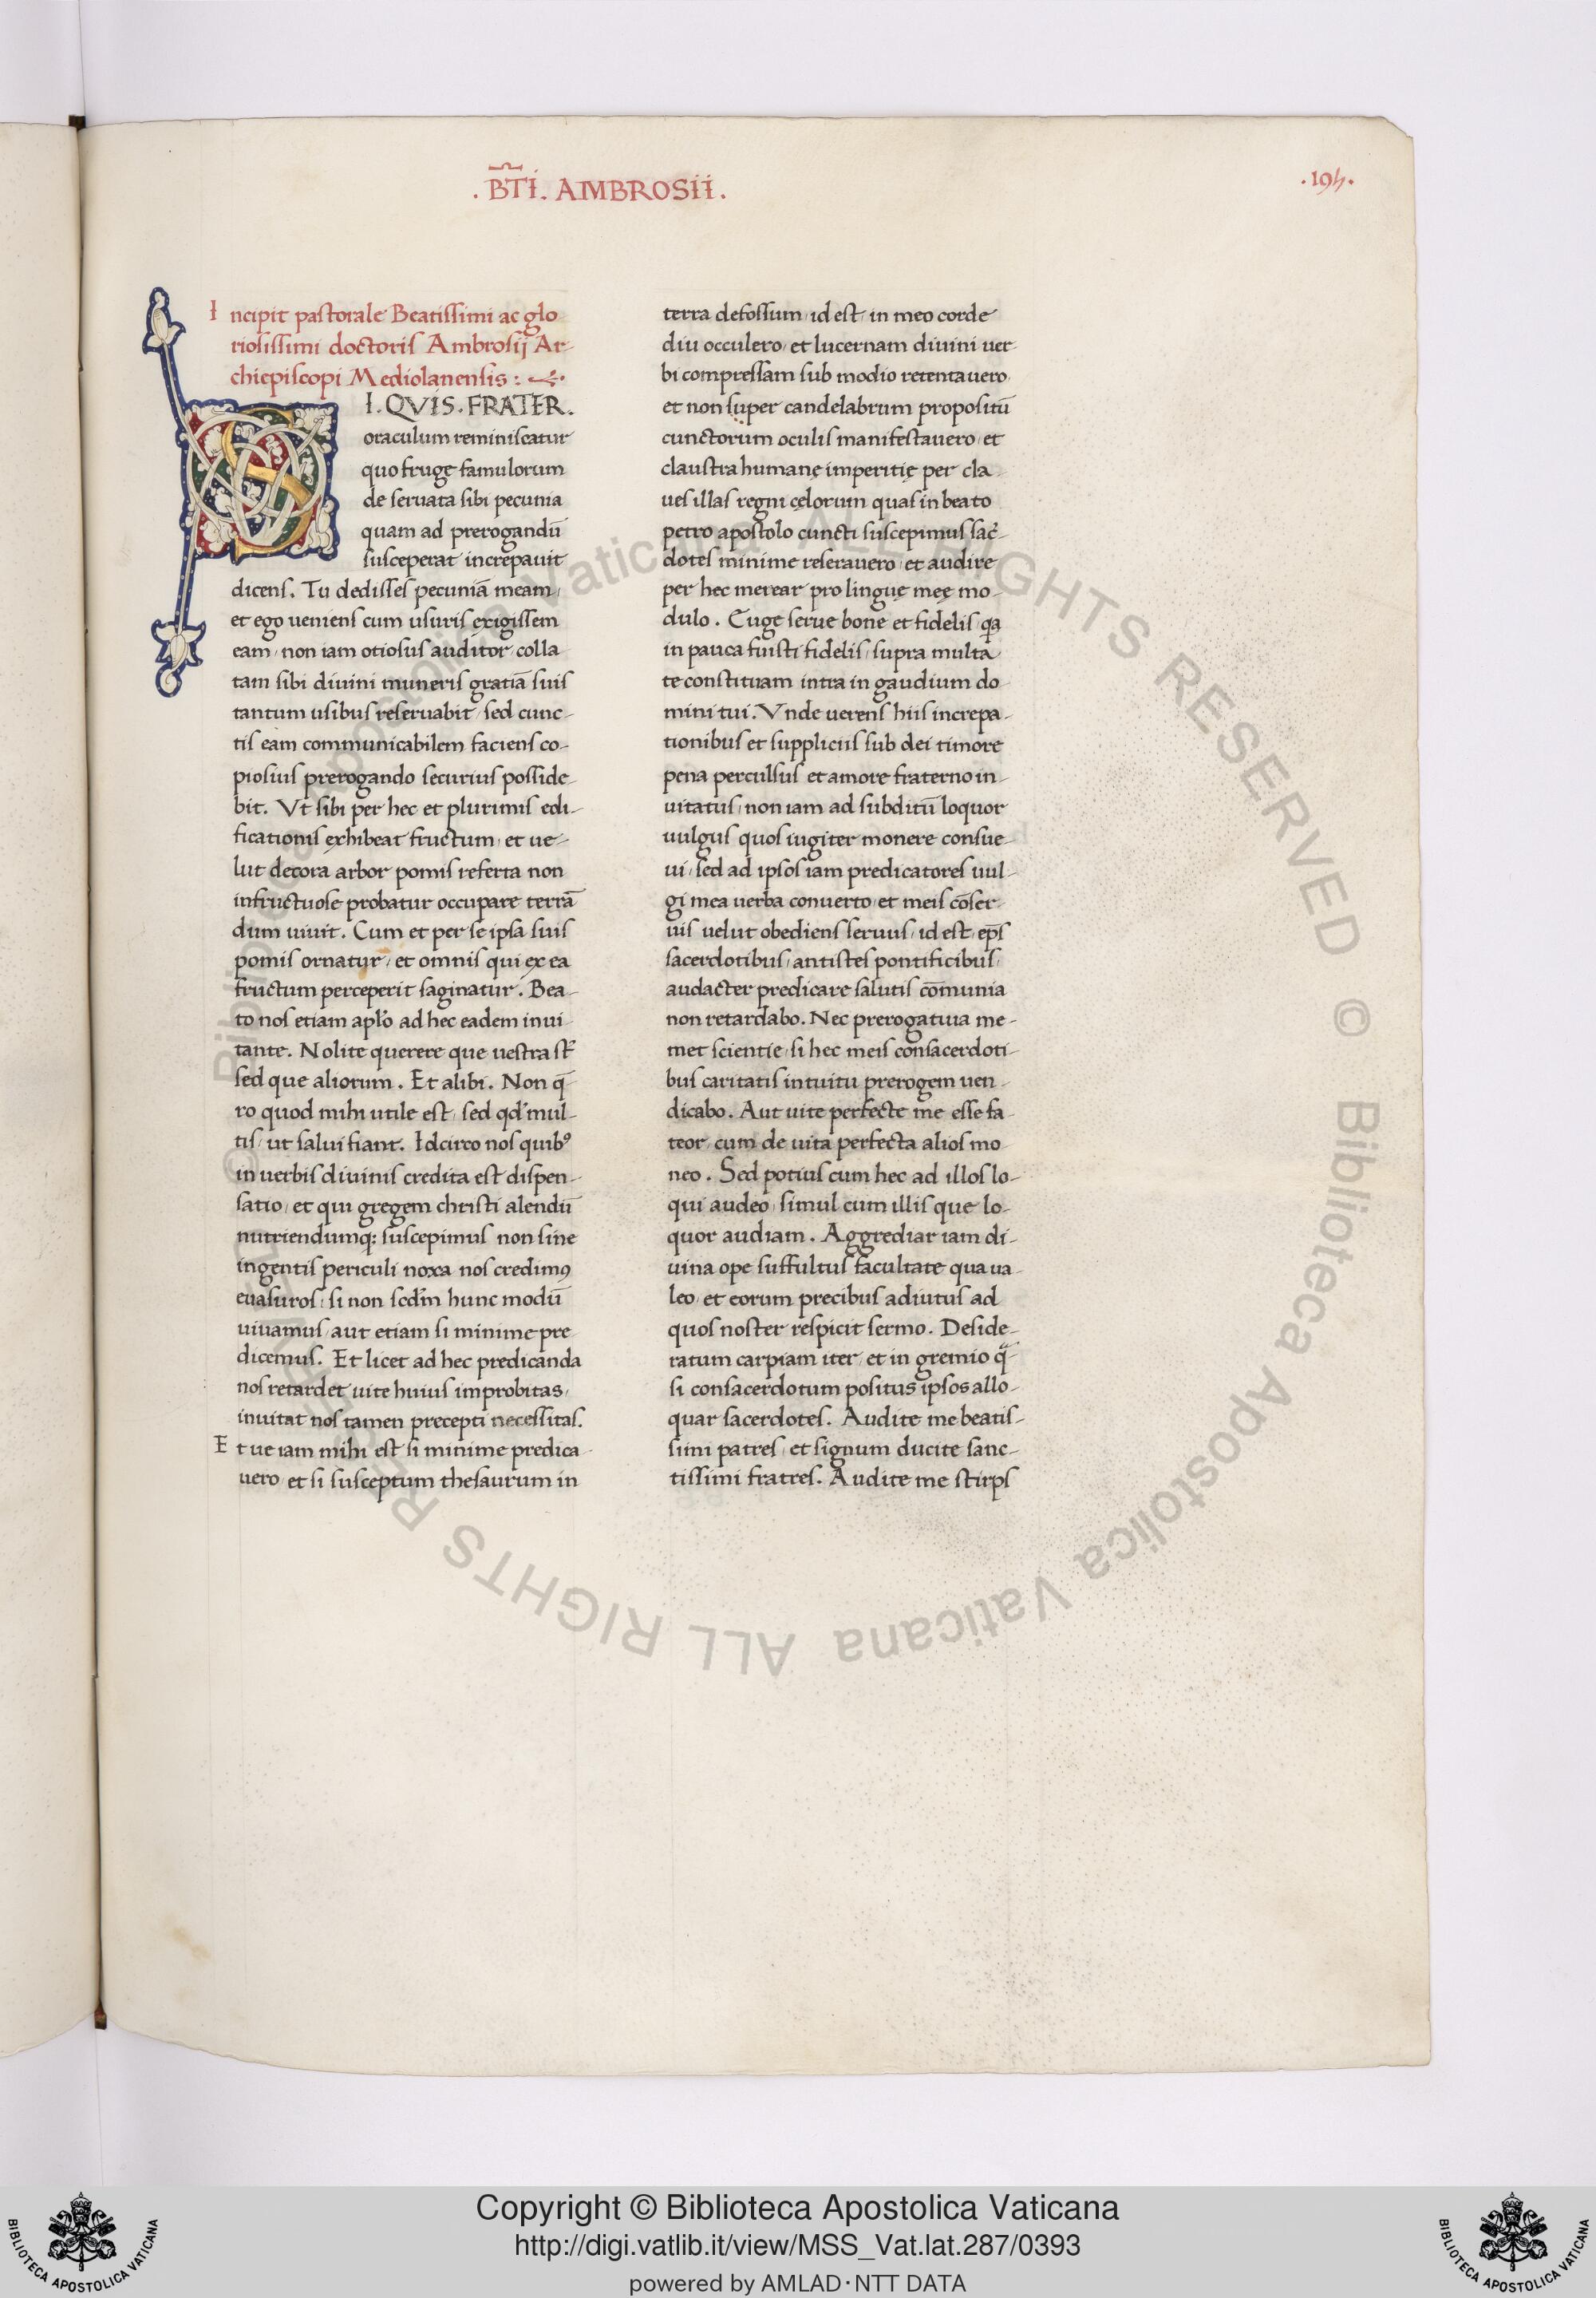 .BT̄I. AMBROSII.
.194.
Incipit pastorale Beatissimi ac glo
riosissimi doctoris Ambrosij Ar-
chiepiscopi Mediolanensis :
SI. QVIS. FRATER.
oraculum reminiscatur
quo fruge famulorum
de seruata sibi pecunia
quam ad prerogandū
susceperat increpauit
dicens. Tu dedisses pecuniā meam,
et ego ueniens cum usuris exigissem
eam, non iam otiosus auditor, colla
tam sibi diuini muneris gratiā suis
tantum usibus reseruabit, sed cunc-
tis eam communicabilem faciens co-
piosius prerogando securius posside-
bit. Vt sibi per hec et plurimis edi-
ficationis exhibeat fructum, et ue-
lut decora arbor pomis referta non
infructuose probatur occupare terrā
dum uiuit. Cum et per se ipsā suis
pomis ornatur, et omnis qui ex ea
fructum perceperit saginatur. Bea-
to nos etiam apl'o ad hec eadem inui-
tante. Nolite querere que uestra st̄
sed que aliorum. Et alibi. Non q̄-
ro quod mihi utile est, sed qd' mul-
tis, ut salui fiant. Idcirco nos quibꝰ
in uerbis diuinis credita est dispen-
satio, et qui gregem christi alendū
nutriendumq; suscepimus non sine
ingentis periculi noxa nos credimꝰ
euasuros, si non scd'm hunc modū
uiuamus, aut etiam si minime pre
dicemus. Et licet ad hec predicanda
nos retardet uite huius improbitas,
inuitat nos tamen precepti necessitas.
Et ue iam mihi est si minime predica-
uero et si susceptum thesaurum in
terra defossum, id est, in meo corde
diu occulero, et lucernam diuini uer-
bi compressam sub modio retentauero,
et non super candelabrum propositū
cunctorum oculis manifestauero, et
claustra humanę imperitię per cla-
ues illas regni cęlorum quas in beato
petro apostolo cuncti suscepimus sac̄-
dotes minime reserauero, et audire
per hec merear pro linguę meę mo-
dulo. Euge serue bone et fidelis, qa
in pauca fuisti fidelis, supra multa
te constituam intra in gaudium do-
mini tui. Vnde uerens hiis increpa-
tionibus et suppliciis sub dei timore
pena perculsus et amore fraterno in-
uitatus, non iam ad subditū loquor
uulgus quos iugiter monere consue-
ui, sed ad ipsos iam predicatores uul-
gi mea uerba conuerto, et meis cōser-
uis uelut obediens seruus, id est, ep̄s
sacerdotibus, antistes pontificibus,
audacter predicare salutis cōmunia
non retardabo. Nec prerogatiua me-
met scientie, si hec meis consacerdoti-
bus caritatis intuitu prerogem uen-
dicabo. Aut uite perfecte me esse fa-
teor, cum de uita perfecta alios mo-
neo. Sed potius cum hec ad illos lo-
qui audeo, simul cum illis que lo-
quor audiam. Aggrediar iam di-
uina ope suffultus facultate qua ua-
leo, et eorum precibus adiutus ad
quos noster respicit sermo. Deside-
ratum carpiam iter, et in gremio q̄-
si consacerdotum positus ipsos allo-
quar sacerdotes. Audite me beatis-
simi patres, et signum ducite sanc-
tissimi fratres. Audite me stirps
© Biblioteca Apostolica Vaticana ALL RIGHTS RESERVED © Biblioteca Apostolica Vaticana ALL RIGHTS RESERVED
Copyright © Biblioteca Apostolica Vaticana
http://digi.vatlib.it/view/MSS_Vat.lat.287/0393
powered by AMLAD·NTT DATA
BIBLIOTECA APOSTOLICA VATICANA
BIBLIOTECA APOSTOLICA VATICANA